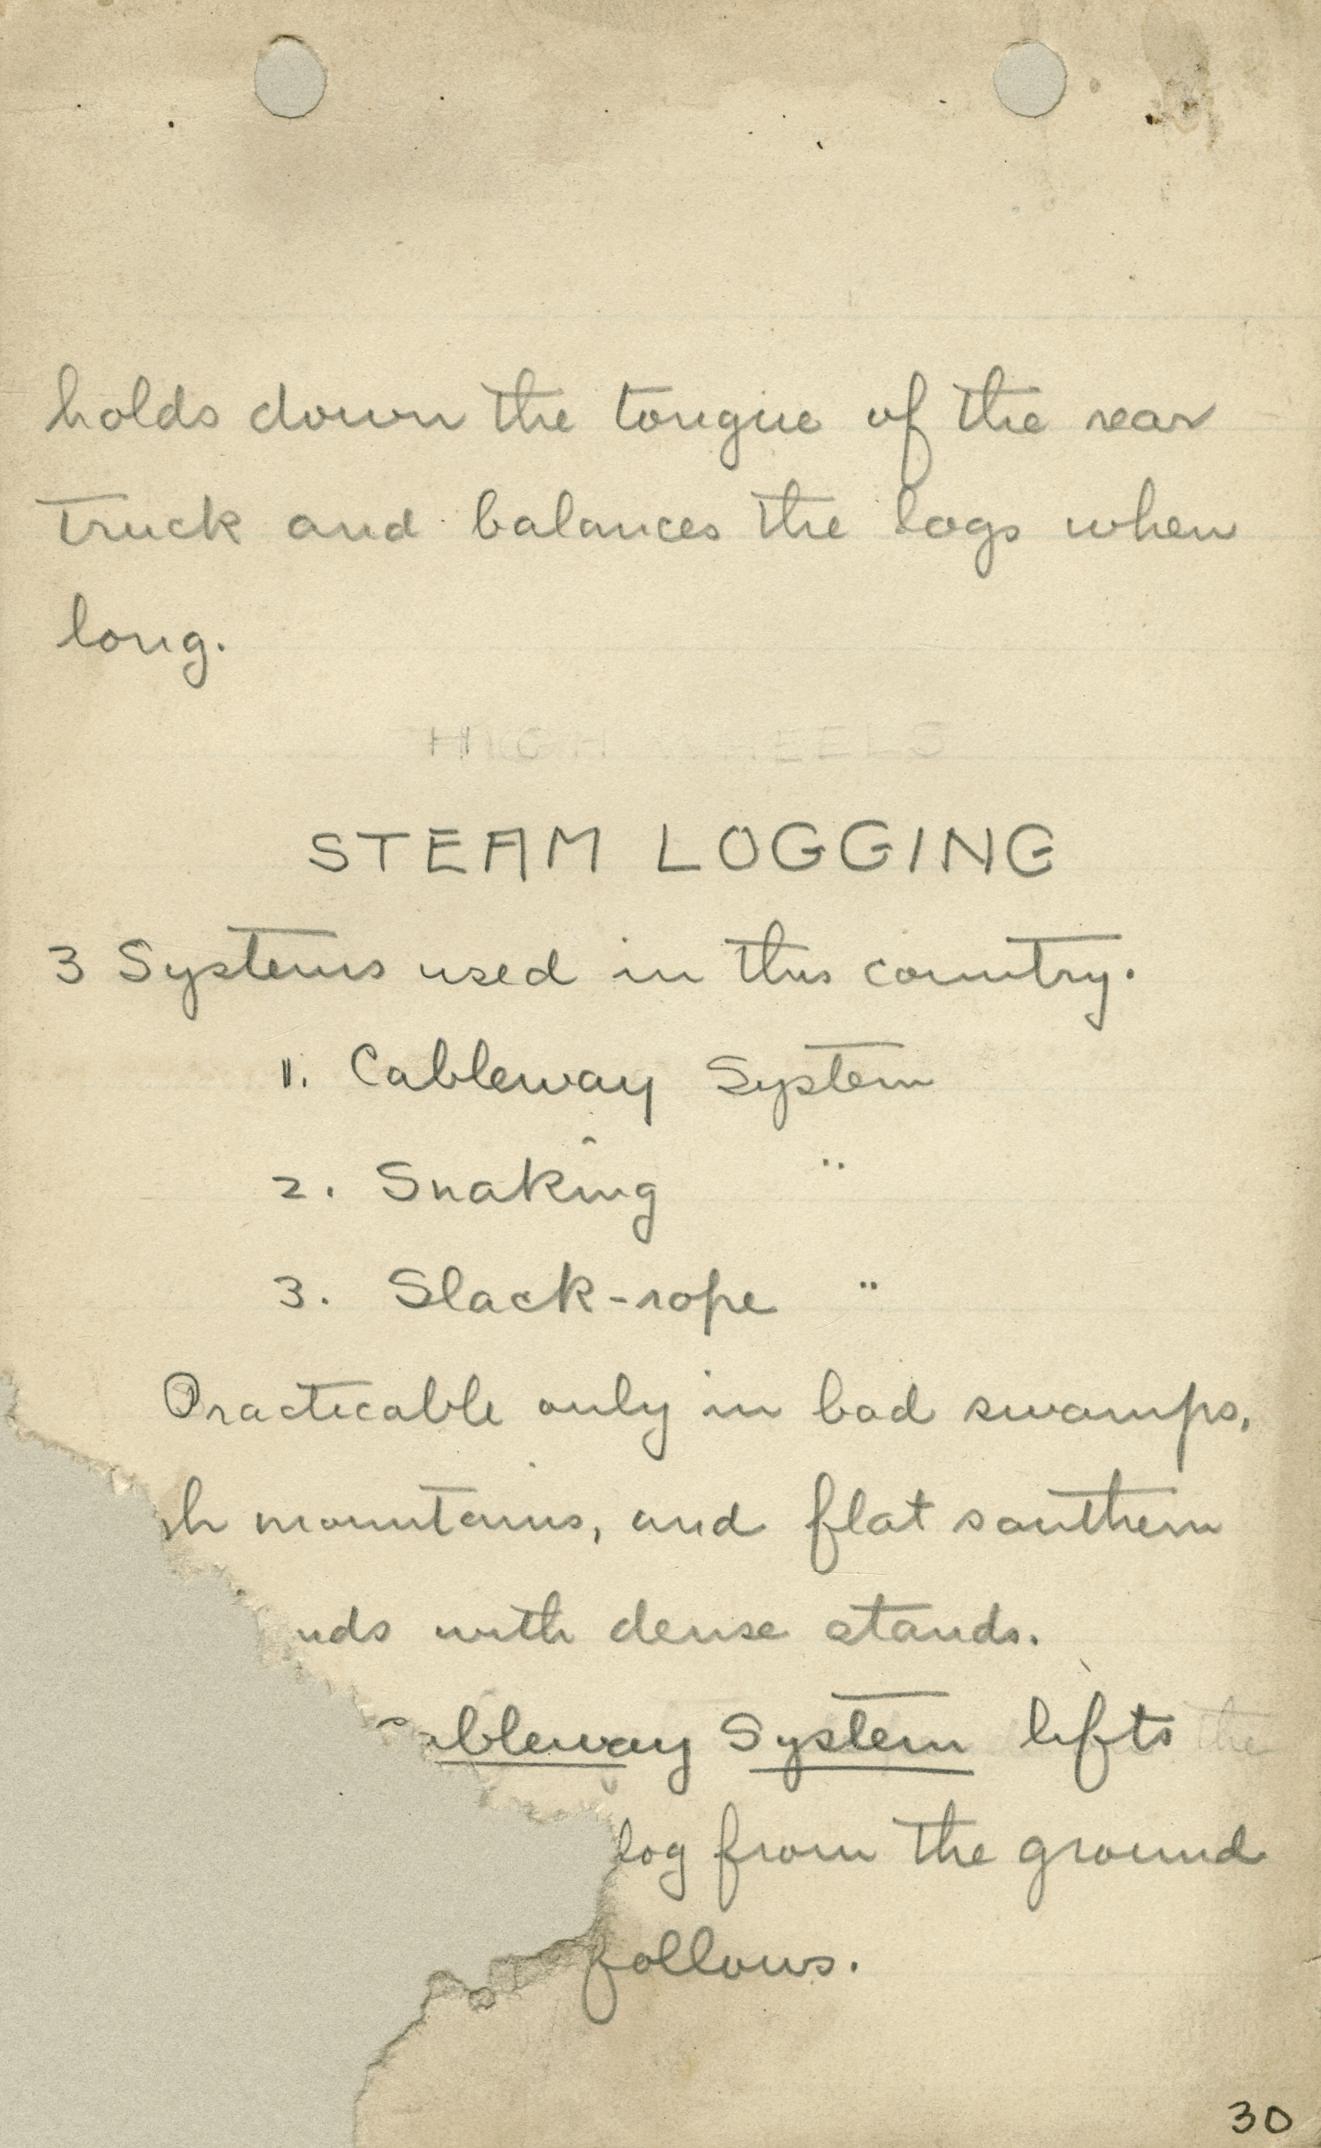 holds down the tongue of the rear
truck and balances the logs when
long.
HIGH WHEELS
STEAM LOGGING
3 Systems used in this country.
1. Cableway System
2. Snaking "
3. Slack-rope "
Practicable only in bad swamps,
mountains, and flat southern
with dense stands.
Cableway System lifts the
log from the ground
follows.
30